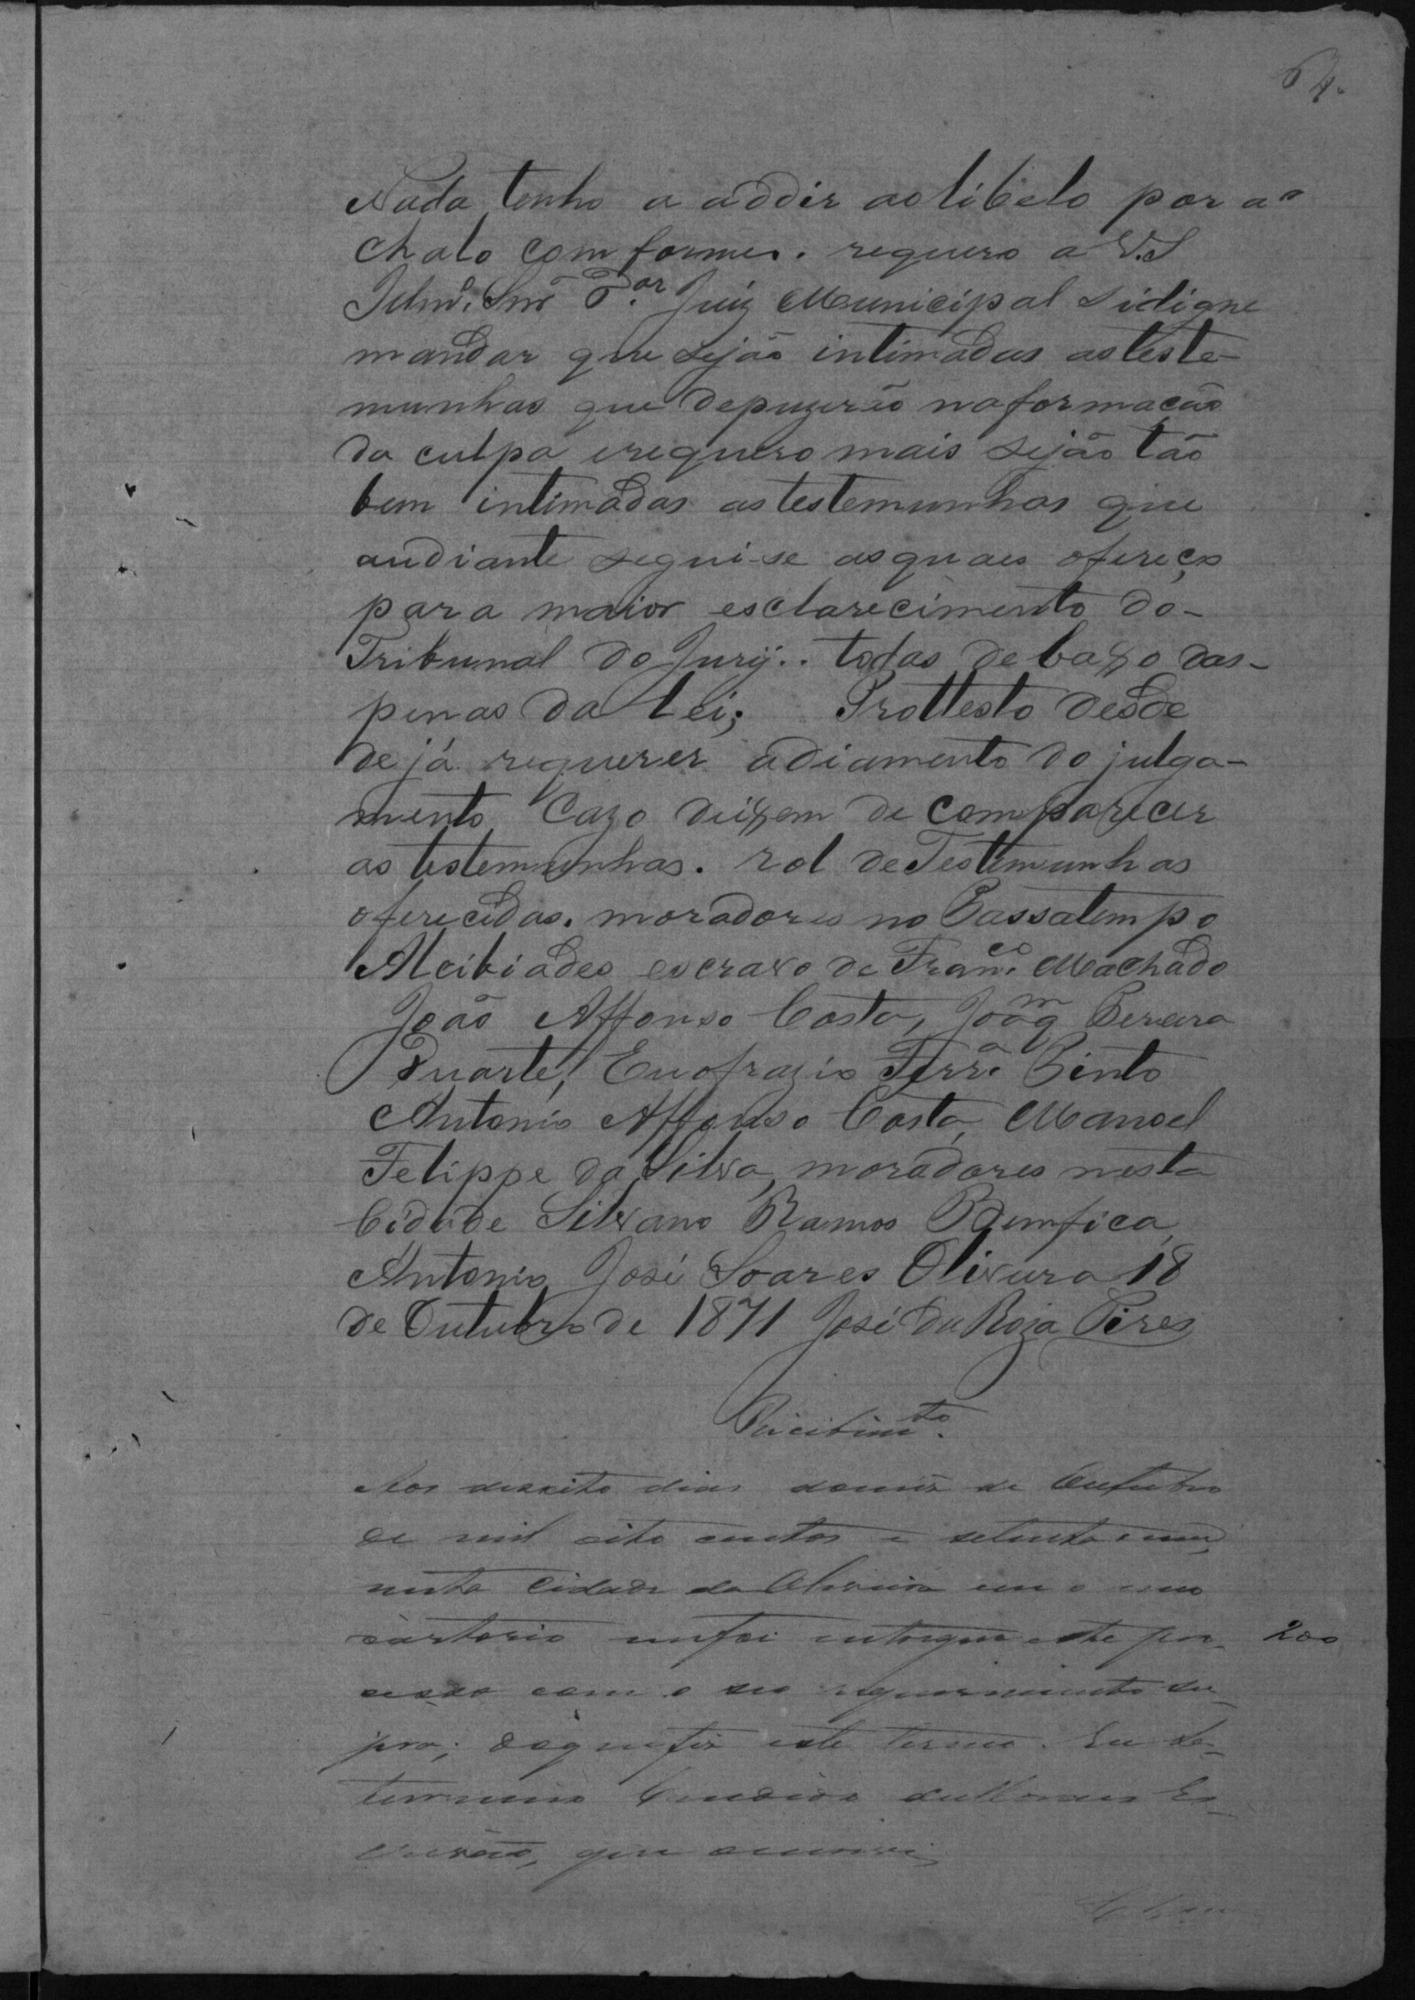 64.
Nada tenho a addir ao libelo por a
chalo comforme. requero a V.S
Illmo. Snr Dor. Juiz Municipal sidigne
mandar que sejão intimadas as teste-
munhas que depuzerão na formação
da culpa erequero mais sejão tão
bem intimadas as testemunhas que
audiante segui-se as quaes ofereço
para maior esclarecimento do-
Tribunal do Jury.. todas de baxo das-
penas da Lei; Prottesto desde
de já requerer adiamento do julga-
mento Cazo deixem de comparecer
as testemunhas. rol de Testemunhas
oferecidas. moradores no Passatempo
Alcibiades escravo de Franco. Machado
João Affonso Costa, Joaqm Pereira
Duarte, Euofrazio Ferra. Pinto
Antonio Affonso Costa, Manoel
Felippe da Silva, moradores nesta
Cidade Silvano Ramos Bemfica,
Antonio José Soares Olivura 18
de Outubro de 1871 José da Roza Pires
Recebimto.
Aos desoito dias domes de Outubro
de mil oito centos e setenta e um,
nesta Cidade da Oliveira em o meu
cartorio mefoi entregue este pro- 200
cesso com o seo requerimento su-
pra; doque fiz este termo. Eu
Candido de Moraes Es-
crivão, que escrevi